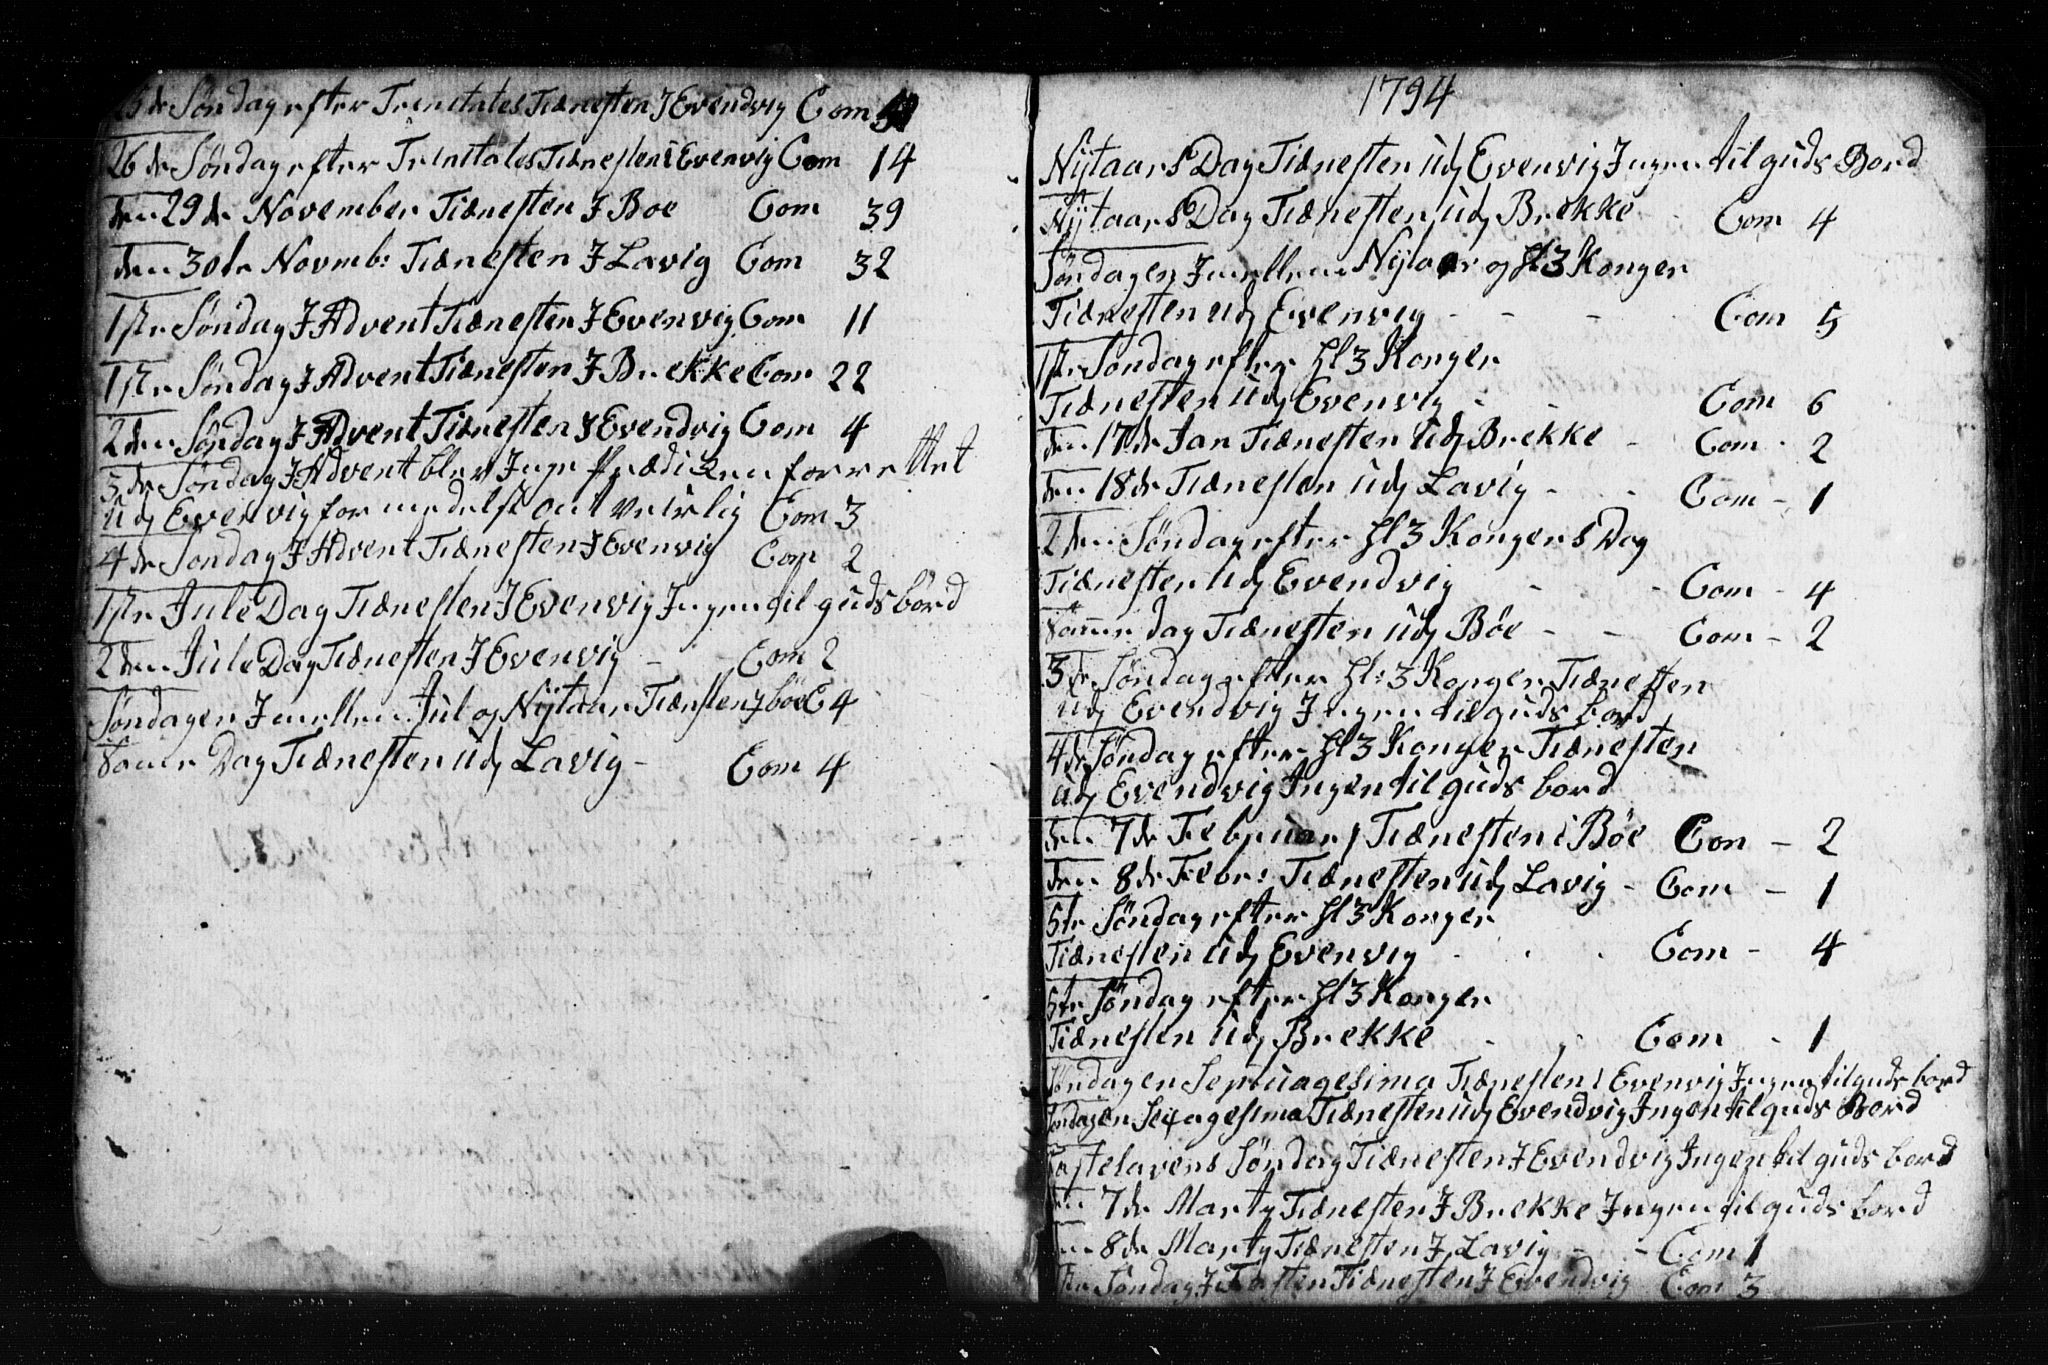 25de Søndag efter Trenitates Tiænesten J Evendvig Com
26de Søndag efter Trenitates Tiænesten i Evenvig Com 14
den 29de November Tiænesten J Boe Com 39
den 30te Novmb: Tiænesten J Lavig Com 32
1ste Søndag J Advent Tiænesten J Evenvig Com 11
1ste Søndag J Advent Tiænesten J Brekke Com 22
2den Søndag J Advent Tiænesten J Evendvig Com 4
3de Søndag J Advent blev Jngen Prædiken forrettet
udj Evenvig formedelst ont veirlig Com 3
4de Søndag J Advent Tiænesten J Evenvig Com 2
1ste Jule Dag Tiænesten J Evenvig Jngen til guds bord
2den Jule Dag Tiænesten J Evenvig - Com 2
Søndagen Jmellem Jul og Nÿtaar Tiænsten J böe C 4
Samme Dag Tiænesten udj Lavig - Com 4
1794
Nÿtaars Dag Tiænesten udj Evenvig Jngen til guds Bord
Nÿtaars Dag Tiænesten udj Brekke - Com 4
Søndagen Jmellem Nÿtaar og Hl 3 Konger
Tiænesten udj Evenvig - - - Com 5
1ste Søndag efter Hl 3 Konger
Tiænesten udj Evenvig - - Com 6
den 17de Jan Tiænesten udj Brekke - Com - 2
den 18de Tiænesten udj Lavig - - Com - 1
2den Søndag efter Hl 3 Kongers Dag
Tiænesten udj Evendvig - - Com - 4
Samme dag Tiænesten udj Böe - - Com - 2
3de Søndag efter Hl: 3 Konger Tiænesten
udj Evendvig Jngen til guds bord
4de Søndag efter Hl 3 Konger Tiænesten
udj Evendvig Jngen til guds bord
den 7de Februarj Tiænesten i Böe Com - 2
den 8de Febr: Tiænesten udj Lavig - Com - 1
5te Søndag efter Hl 3 Konger
Tiænesten udj Evenvig - - - Com - 4
5te Søndag efter Hl 3 Konger
Tiænesten udj Brekke - - Com - 1
Søndagen Septuagesima Tiænesten i Evenvig Jngen til guds bord
Søndagen Sexagesima Tiænesten udj Evendvig Jngen til guds Bord
Fastelavens Søndag Tiænesten J Evendvig Jngen til guds bord
den 7de Martÿ Tiænesten J Brekke Jngen til guds bord
den 8de Martÿ Tiænesten J Lavig - - Com 1
1ste Søndag J Fasten Tiænesten J Evendvig Com 3